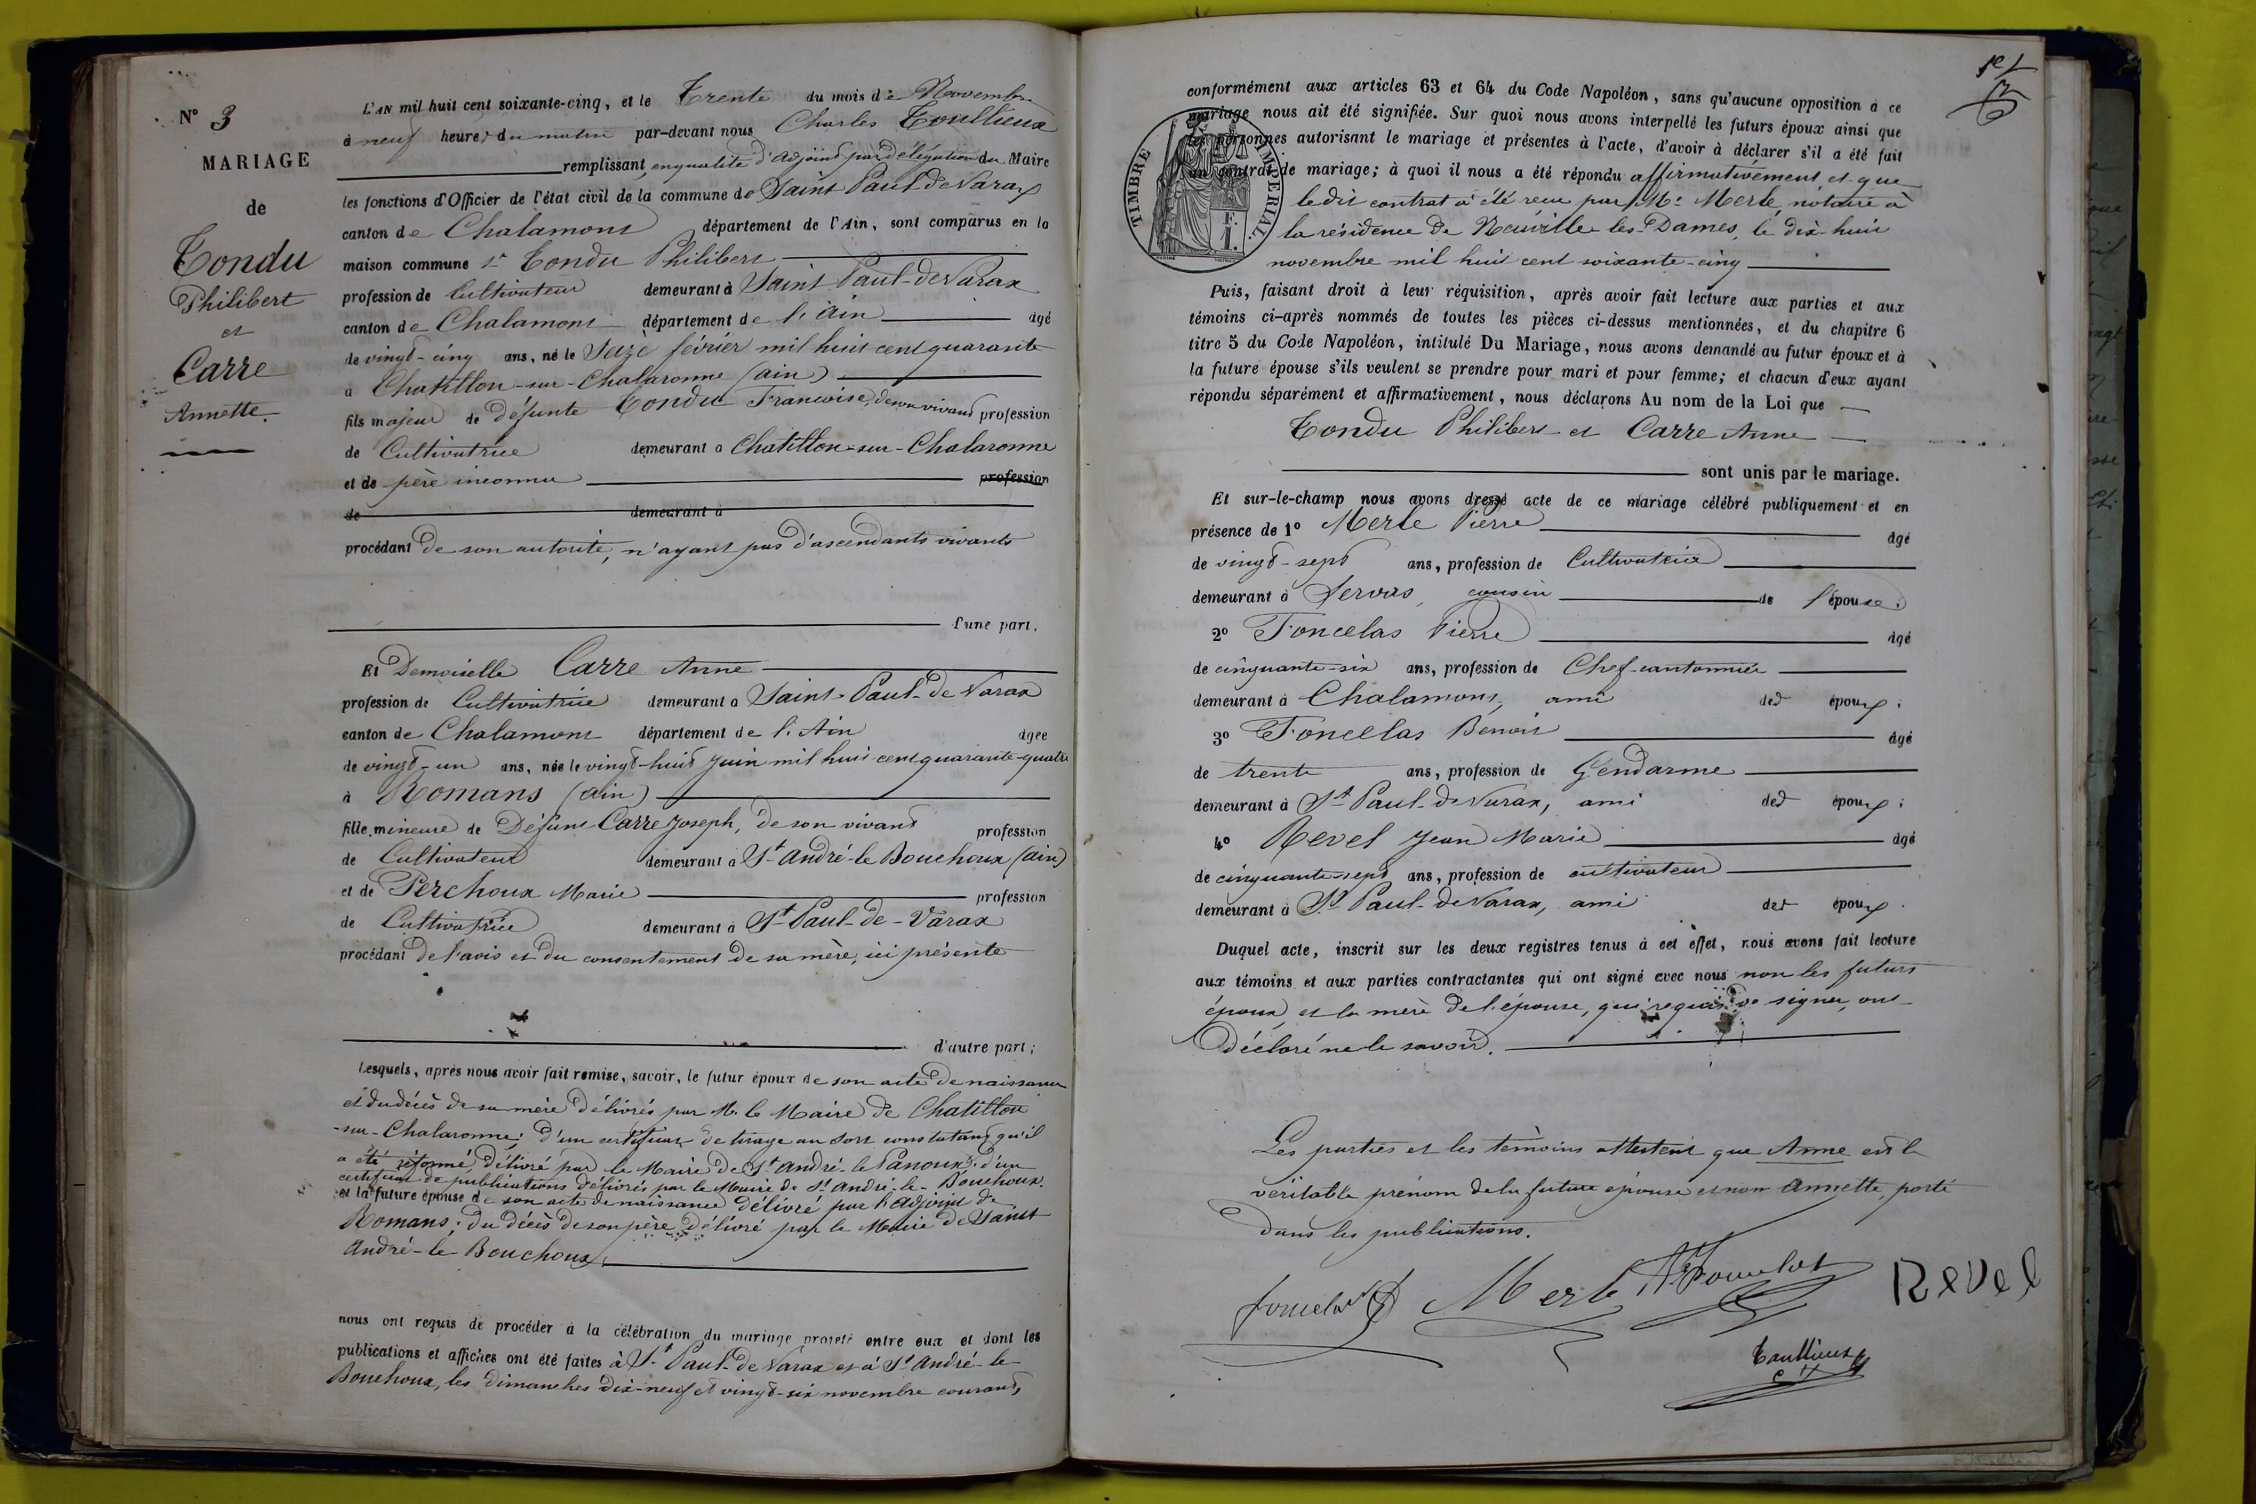 N° 3
MARIAGE
de
Tondu
Philibert
et
Carre
Annette.
L'AN mil huit cent soixante-cinq, et le Trente du mois de Novembre
à neuf heures du matin par-devant nous Charles Toullieux
remplissant, en qualité d'adjoint par délégation du Maire
les fonctions d'Officier de l'état civil de la commune de Saint Paul-de Varax
canton de Chalamont département de l'Ain, sont comparus en la
maison commune sr Tondu Philibert
profession de Cultivateur demeurant à Saint Paul-de Varax
canton de Chalamont département de l'Ain âgé
de vingt-cinq ans, né le Seize février mil huit cent quarante
à Chatillon-sur-Chalaronne (ain)
fils majeur de défunte Tondu Francoise, de son vivant profession
de Cultivatrice demeurant à Chatillon-sur-Chalaronne
et de père inconnu profession
de demeurant à
procédant de son autorité, n'ayant pas d'ascendants vivants
d'une part.
Et Demoiselle Carre Anne
profession de Cultivatrice demeurant à Saint-Paul-de Varax
canton de Chalamont département de l'Ain âgée
de vingt-un ans, née le vingt-huit juin mil huit cent quarante-quatre
à Romans (ain)
fille mineure de Défunt Carre Joseph, de son vivant profession
de Cultivateur demeurant à St André-le Bouchoux (ain)
et de Perchoux Marie profession
de Cultivatrice demeurant à St-Paul-de-Varax
procédant de l'avis et du consentement de sa mère, ici présente
d'autre part;
Lesquels, après nous avoir fait remise, savoir, le futur époux de son acte de naissance
et du décès de sa mère délivrés par M. le Maire de Chatillon
-sur-Chalaronne; d'un certificat de tirage au sort constatant qu'il
a été réformé, délivré par le Maire de St André-le Panoux; d'un
certificat de publications délivrés par le Maire de St André-le-Bouchoux.
et la future épouse de son acte de naissance délivré par l'adjoint de
Romans; du décès de son père délivré par le Maire de Saint
André-le-Bouchoux,
nous ont requis de procéder à la célébration du mariage projeté entre eux et dont les
publications et affiches ont été faites à St Paul-de Varax et à St André-le
Bouchoux, les dimanches dix-neuf et vingt-six novembre courant,
conformément aux articles 63 et 64 du Code Napoléon, sans qu'aucune opposition à ce
mariage nous ait été signifiée. Sur quoi nous avons interpellé les futurs époux ainsi que
les personnes autorisant le mariage et présentes à l'acte, d'avoir à déclarer s'il a été fait
un contrat de mariage; à quoi il nous a été répondu affirmativement et que
le dit contrat a été recu par Me Merle, notaire à
la résidence de Neuville-les-Dames, le dix-huit
novembre mil huit cent soixante-cinq
TIMBRE IMPERIAL.
Puis, faisant droit à leur réquisition, après avoir fait lecture aux parties et aux
témoins ci-après nommés de toutes les pièces ci-dessus mentionnées, et du chapitre 6
titre 5 du Code Napoléon, intitulé Du Mariage, nous avons demandé au futur époux et à
la future épouse s'ils veulent se prendre pour mari et pour femme; et chacun d'eux ayant
répondu séparément et affirmativement, nous déclarons Au nom de la Loi que
Tondu Philibert et Carre Anne
sont unis par le mariage.
Et sur-le-champ nous avons dressé acte de ce mariage célébré publiquement et en
présence de 1° Merle Pierre âgé
de vingt-sept ans, profession de Cultivateur
demeurant à Servas, cousin de l'épouse.
2° Foncelas Pierre âgé
de cinquante-six ans, profession de Chef-cantonnier
demeurant à Chalamont, ami des époux;
3° Foncelas Benoit âgé
de trente ans, profession de Gendarme
demeurant à St-Paul-de Varax, ami des époux;
4° Revel Jean Marie âgé
de cinquante-sept ans, profession de cultivateur
demeurant à St-Paul-de Varax, ami des époux.
Duquel acte, inscrit sur les deux registres tenus à cet effet, nous avons fait lecture
aux témoins et aux parties contractantes qui ont signé avec nous non les futurs
époux et la mère de l'épouse, qui requis de signer, ont
déclaré ne le savoir.
Les parties et les témoins attestent que Anne est le
véritable prénom de la future épouse et non Annette, porté
dans les publications.
Foncelas Merle Foncelas Revel
Toullieux